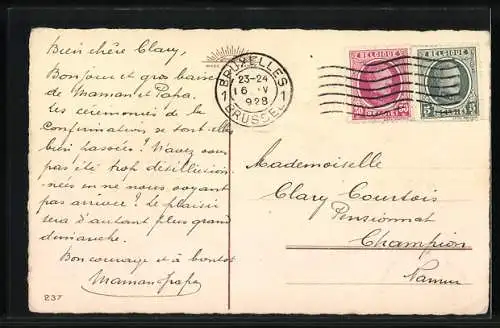 Bien chère Clary,
Bonjour et gros baiser
de Maman et Papa.
Les cérémonies de la
confirmation se sont-elles
bien passées? N'avez vous
pas été trop désillusion-
nées en ne nous voyant
pas arriver? Le plaisir
sera d'autant plus grand
dimanche.
Bon courage et à bientôt
Maman Papa
237
BRUXELLES
23-24
16 V
1 1
1928
BRUSSEL
BELGIQUE BELGIQUE
BELGIË BELGIË
Mademoiselle
Clary Courtois
Pensionnat
Champion
Namur